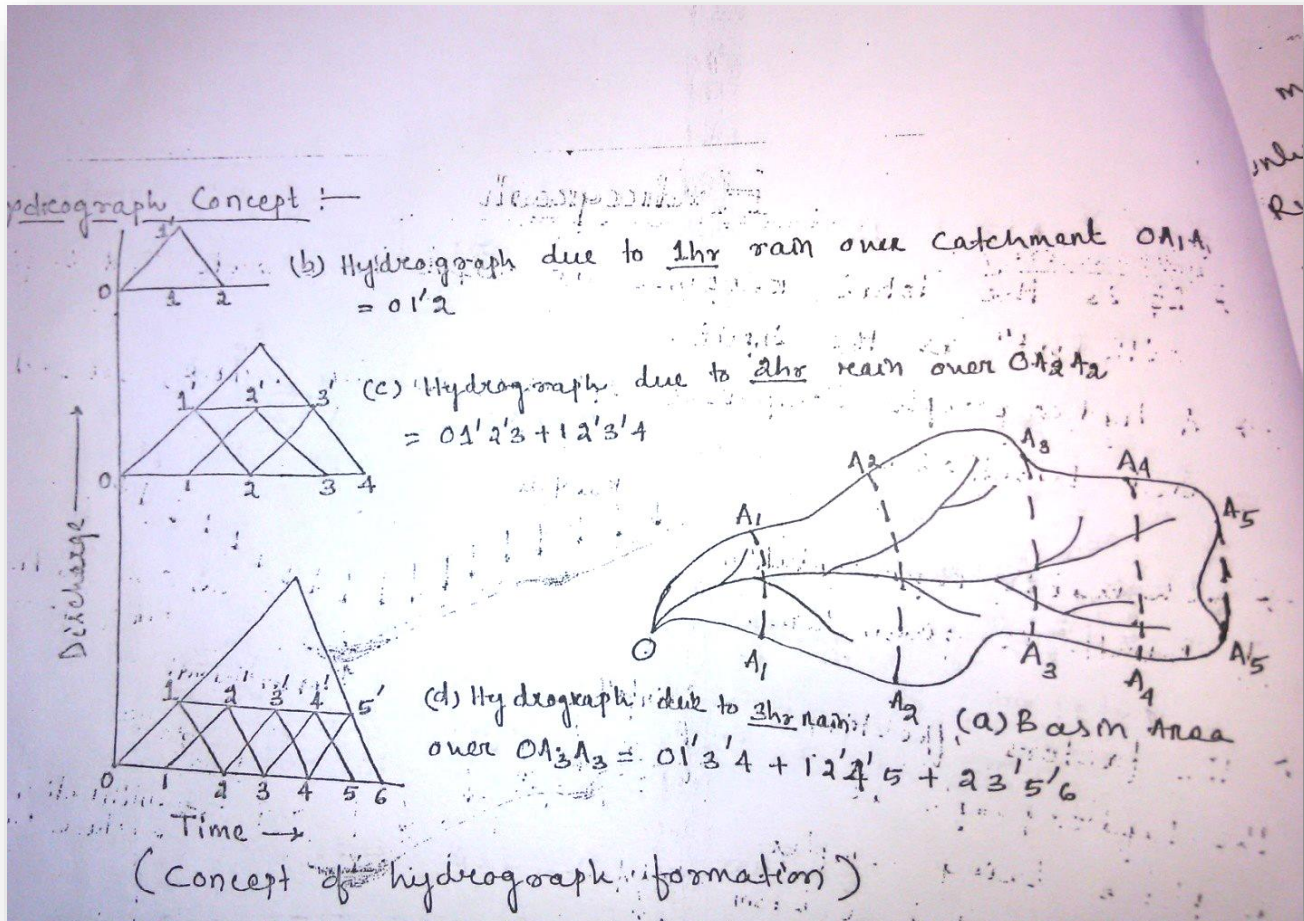 ydrograph Concept :-
1'
0 1 2
(b) Hydrograph due to 1hr rain over Catchment OA1A1
= 01'2
1' 2' 3'
0 1 2 3 4
(c) Hydrograph due to 2hr rain over OA2A2
= 01'2'3 + 12'3'4
Discharge
1' 2' 3' 4' 5'
0 1 2 3 4 5 6
Time →
(d) Hydrograph due to 3hr rain
over OA3A3 = 01'3'4 + 12'4'5 + 23'5'6
A1 A2 A3 A4 A5
O
A1 A2 A3 A4 A'5
(a) Basin Area
(Concept of hydrograph formation)